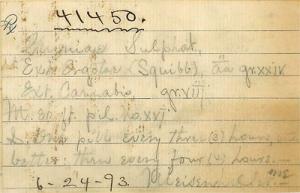 ℞
41450.
Sulphat.
Ext. Ergotae (Squibb) āā gr. xxiv
Ext. Cannabis gr. viii
M. et ft. pil. no. xxi
S. One pill every three (3) hours,
better: then every four (4) hours.
6-24-93.